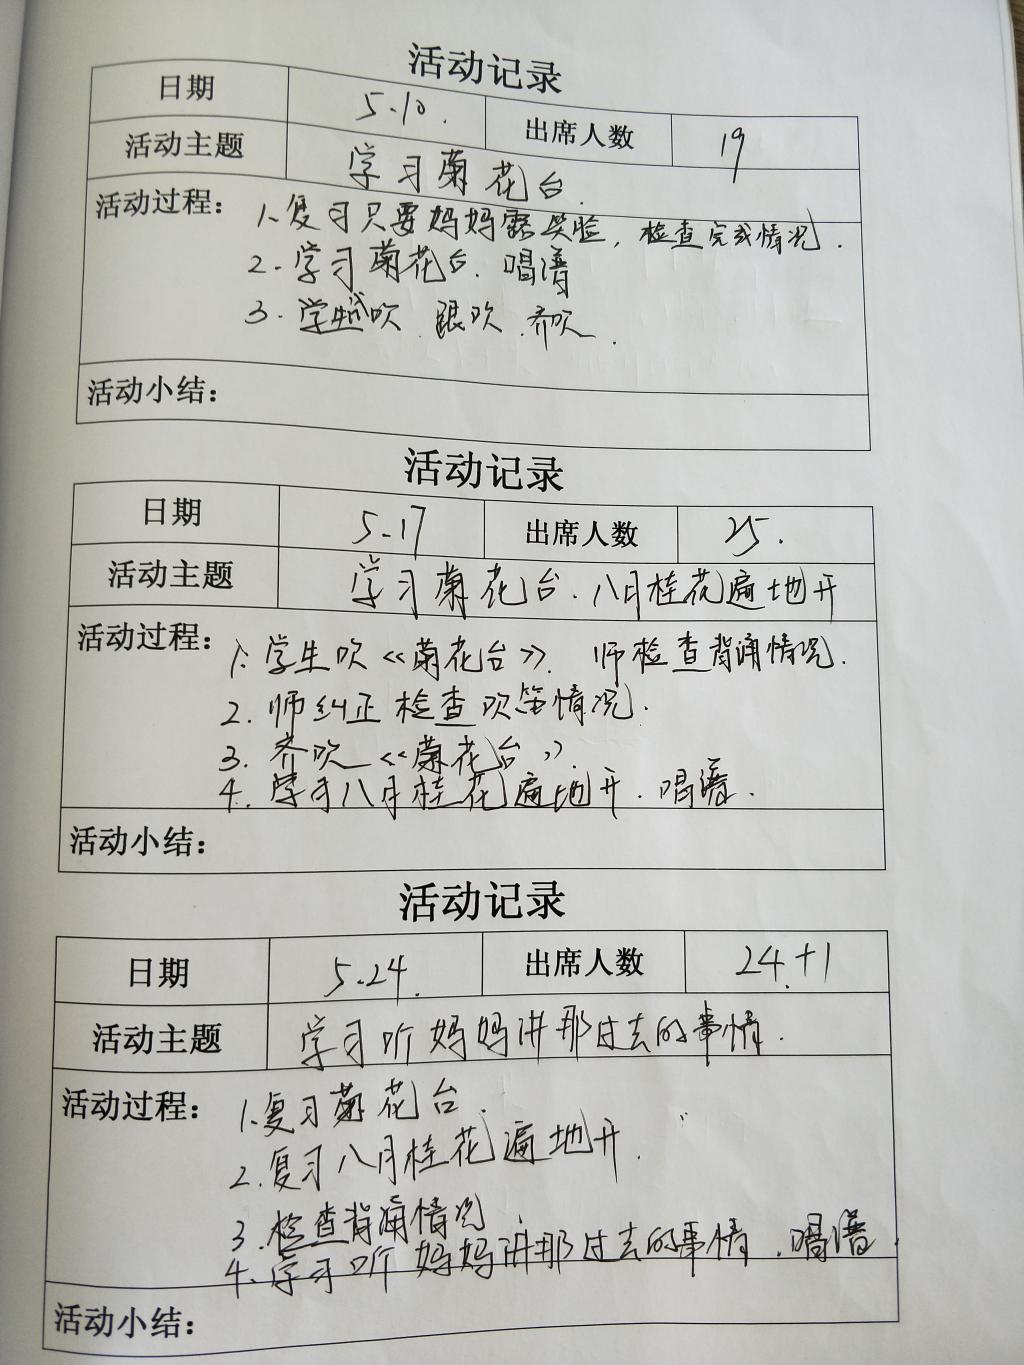 活动记录
日期 5.10. 出席人数 19
活动主题 学习菊花台.
活动过程: 1.复习只要妈妈露笑脸,检查完成情况.
2.学习菊花台.唱谱
3.学生试吹.跟吹.齐吹.
活动小结:
活动记录
日期 5.17 出席人数 25.
活动主题 学习菊花台.八月桂花遍地开
活动过程: 1.学生吹《菊花台》.师检查背诵情况.
2.师纠正检查吹笛情况.
3.齐吹《菊花台》.
4.学习八月桂花遍地开.唱谱.
活动小结:
活动记录
日期 5.24. 出席人数 24+1
活动主题 学习听妈妈讲那过去的事情.
活动过程: 1.复习菊花台.
2.复习八月桂花遍地开.
3.检查背诵情况.
4.学习听妈妈讲那过去的事情.唱谱.
活动小结: